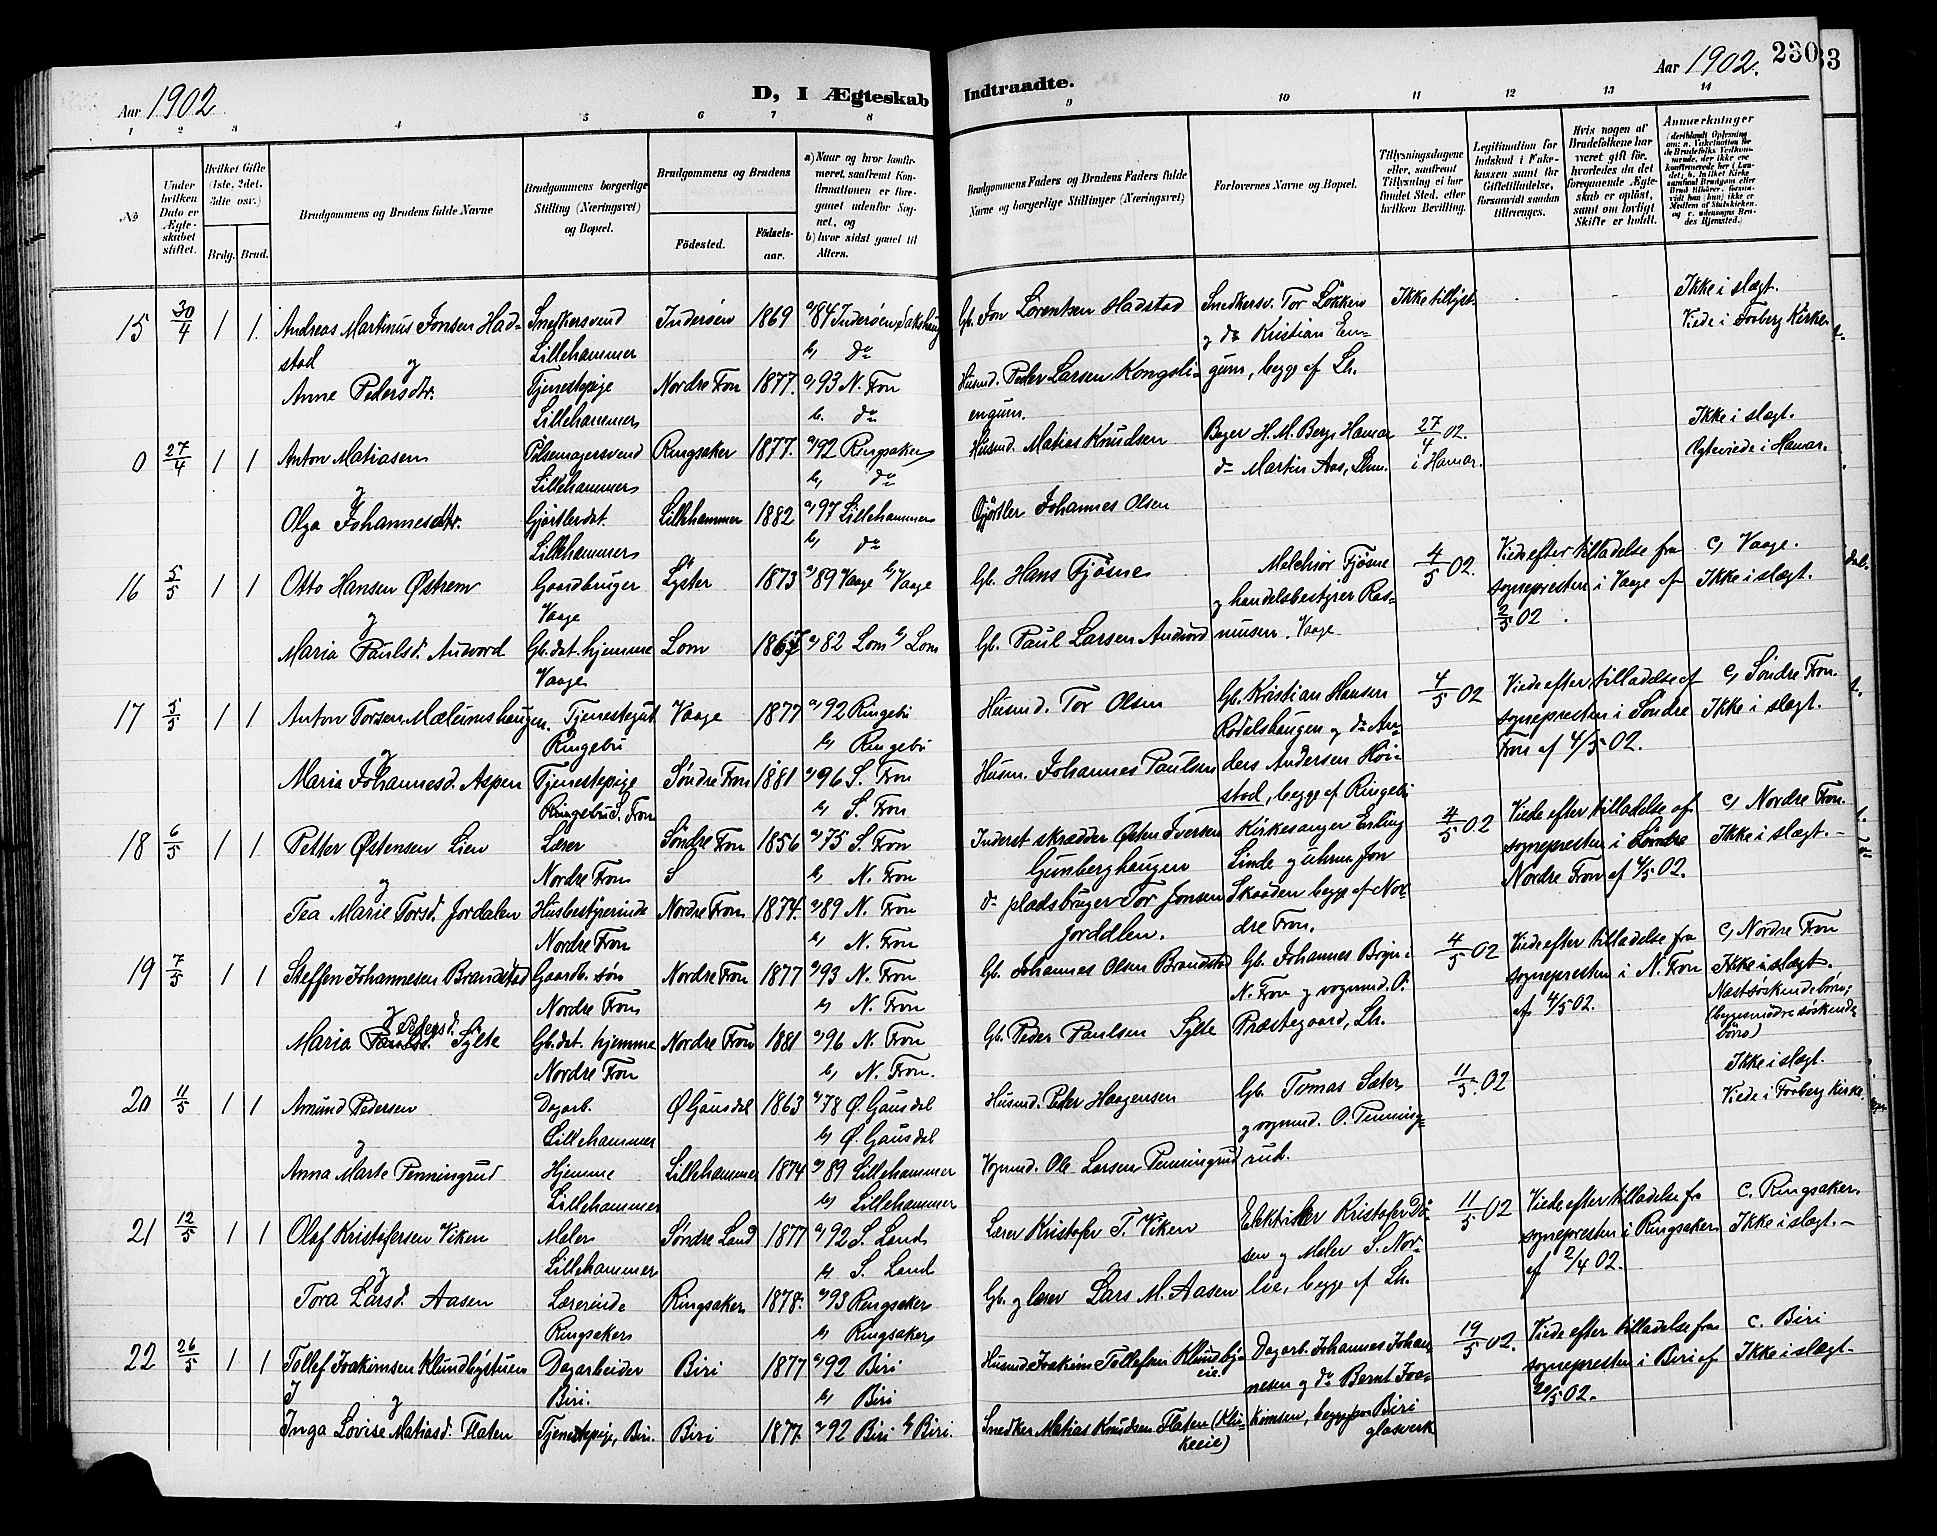 Aar 1902
D, I Ægteskab Indtraadte.
Aar 1902.
230
33
1 2 3 4 5 6 7 8 9 10 11 12 13 14
No
Under hvilken Dato er Ægteskabet stiftet.
Hvilket Gifte (1ste, 2det, 3die osv.)
Brdg. Brud.
Brudgommens og Brudens fulde Navne
Brudgommens borgerlige Stilling (Næringsvei) og Bopæl.
Brudgommens og Brudens
Fødested. Fødselsaar.
a) Naar og hvor konfirmeret, saafremt Konfirmationen er foregaaet udenfor Sognet, og
b) hvor sidst gaaet til Alters.
Brudgommens Faders og Brudens Faders fulde Navne og borgerlige Stillinger (Næringsvei)
Forlovernes Navne og Bopæl.
Tillysningsdagene eller, saafremt Tillysning ei har fundet Sted, efter hvilken Bevilling.
Legitimation for Indskud i Fakekassen samt for Giftetilladelse, forsaavidt saadan tiltrænges.
Hvis nogen af Brudefolkene har været gift før, hvorledes da det foregaaende Ægteskab er opløst, samt om lovligt Skifte er holdt.
Anmærkninger
15 30/4 1 1. Andreas Martinus Jonsen Hadstad Snedkersvend Lillehammer Inderøen 1869 a) 84 Inderøen, Sakshaug b) do Gb. Jon Lorentsen Hadstad Snedkersv. Tor Løkken og do Kristian Engum, begge af Lh. Ikke tillyst. Ikke i slægt. Viede i Faaberg Kirke.
og
Anne Pedersdtr. Tjenestepige Lillehammer Nordre Fron 1877. a) 93 N. Fron b. do Husmd. Peder Larsen Kongsliengum.
0 27/4 1 1 Anton Matiasen Pølsemagersvend Lillehammer Ringsaker 1877. a) 92 Ringsaker b) do Husmd. Matias Knudsen Bager H. M. Berg, Hamar do Martin Aas, Lhm. 27/4 02. i Hamar. Ikke i slægt. Ægteviede i Hamar.
og
Olga Johannesdtr. Gjørtlerdat. Lillehammer Lillehammer 1882 a) 97 Lillehammer b) do Gjørtler Johannes Olsen
16 5/5 1 1 Otto Hansen Østrem Gaardbruger Vaage Lyster 1873 a) 89 Vaage b) Vaage Gb. Hans Fjøsne Melchior Fjøsne og handelsbestyrer Rasmusen. Vaage 4/5 02. Viede efter tilladelse fra sognepresten i Vaage af 2/5 02. c) Vaage. Ikke i slægt.
og
Maria Paulsd. Andvord Gb.dat. hjemme Vaage Lom 1867 a) 82 Lom b) Lom Gb. Paul Larsen Andvord
17 5/5 1 1 Anton Torsen Mælumshaugen. Tjenestegut Ringebu Vaage 1877 a) 92 Ringebu b) Ringebu Husmd. Tor Olsen Gb. Kristian Hansen Rødelshaugen og do Anders Andersen Høistad, begge af Ringebu 4/5 02 Viede efter tilladelse af sognepresten i Søndre Fron af 4/5 02. c) Søndre Fron. Ikke i slægt.
og
Maria Johannesd. Aspen Tjenestepige Ringebu S. Fron Søndre Fron 1881 a) 96 S. Fron b) S. Fron Husm. Johannes Paulsen
18 6/5 1 1 Petter Østensen Lien Lærer Nordre Fron Søndre Fron 1856 a) 75 S. Fron b) N. Fron Inderst skrædder Østen Iversen Gunberghaugen Kirkesanger Erling Linde og uhrm. Jon Skaaden begge af Nordre Fron. 4/5 02 Viede efter tilladelse af sognepresten i Nordre Fron af 4/5 02. c) Nordre Fron. Ikke i slægt.
og
Tea Marie Torsd. Jordalen Husbestyrerinde Nordre Fron Nordre Fron 1874. a) 89 N. Fron b) N. Fron do pladsbruger Tor Jonsen Jorddlen.
19 7/5 1 1 Steffen Johannesen Brandstad Gaardb. søn Nordre Fron Nordre Fron 1877 a) 93 N. Fron b) N. Fron Gb. Johannes Olsen Brandstad Gb. Johannes N. Fron og vognmd. O. Præstegaard, Lh. 4/5 02 Viede efter tilladelse fra sognepresten i N. Fron af 4/5 02. c) Nordre Fron Ikke i slægt. Næstsøskendebørn; (begges mødre søskendebørn)
og
Maria Pedersd. Sylte Gb.dat. hjemme Nordre Fron Nordre Fron 1881 a) 96 N. Fron b) N. Fron. Gb. Peder Paulsen Sylte
20 11/5 1 1 Amund Pedersen Dagarb. Lillehammer Ø. Gausdal 1863 a) 78 Ø. Gausdal b) Ø. Gausdal Husmd. Peder Haagensen Gb. Tomas Sæter og vognmd. O. Penningrud. 11/5 02 Ikke i slægt. Viede i Faaberg Kirke.
og
Anna Marte Penningrud Hjemme Lillehammer Lillehammer 1874 a) 89 Lillehammer b) Lillehammer Vognmd. Ole Larsen Penningrud
21 12/5 1 1 Olaf Kristofersen Viken Maler Lillehammer Søndre Land 1877 a) 92 S. Land b) S. Land Lærer Kristofer T. Viken Elektriker Kristofer Dåsen og Maler S. Norlie, begge af Lh. 11/5 02 Viede efter tilladelse fra sognepresten i Ringsaker af 2/4 02. c. Ringsaker. Ikke i slægt.
og
Tora Larsd. Aasen Lærerinde Ringsaker Ringsaker 1878. a) 93 Ringsaker b) Ringsaker Gb. og lærer Lars M. Aasen
22 26/5 1 1 Tollef Joakimsen Klundbystuen Dagarbeider Biri. Biri 1877 a) 92 Biri b) Biri Husmd. Joakim Tollefsen Klundbyeie Dagarb. Johannes Johannesen og do Bernt Joakimsen, begge fra Biri glasverk 19/5 02. Viede efter tilladelse fra sognepresten i Biri af 20/5 02. c. Biri Ikke i slægt.
og
Inga Lovise Matiasd. Flaten Tjenestepige, Biri. Biri 1877. a) 92 Biri b) Biri. Snedker Matias Knudsen Flaten